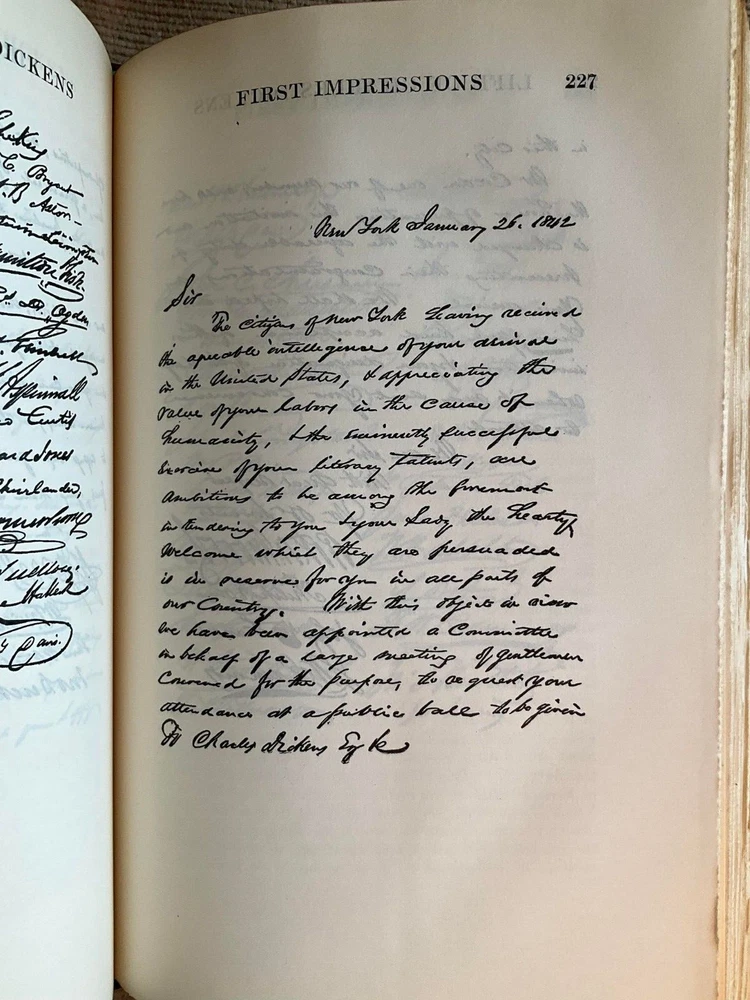 DICKENS
C. Bryant
B Astor
Hamilton Fish
D. Ogden
Aspinwall
Curtis
Jones
Rhinelander,
Davis.
FIRST IMPRESSIONS 227
New York January 26. 1842
Sir
The citizens of New York having received
the agreeable intelligence of your arrival
in the United States, & appreciating the
value of your labors in the cause of
humanity, & the eminently successful
exercise of your literary talents, are
ambitious to be among the foremost
in tendering to you & your Lady the hearty
welcome which they are persuaded
is in reserve for you in all parts of
our Country. With this object in view
we have been appointed a Committee
in behalf of a large meeting of gentlemen
convened for the purpose, to request your
attendance at a public ball to be given
To Charles Dickens Esq &c